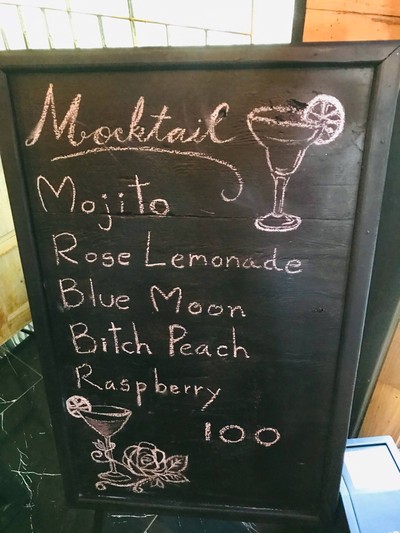 Mocktail
Mojito
Rose Lemonade
Blue Moon
Bitch Peach
Raspberry
100